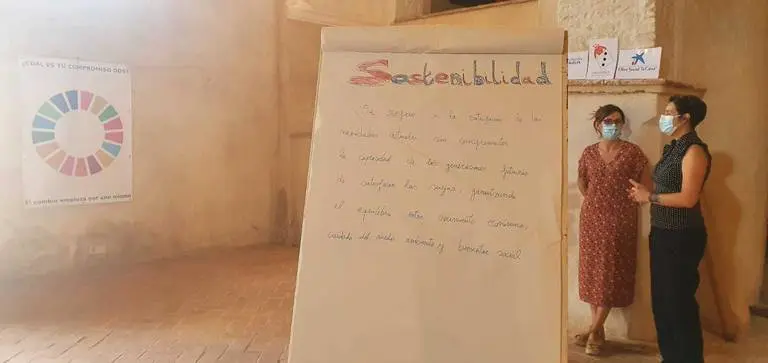 ¿CUÁL ES TU COMPROMISO ODS?
El cambio empieza por uno mismo
Sostenibilidad
Se refiere a la satisfacción de las
necesidades actuales sin comprometer
la capacidad de las generaciones futuras
de satisfacer las suyas, garantizando
el equilibrio entre crecimiento económico,
cuidado del medio ambiente y bienestar social
Obra Social "la Caixa"